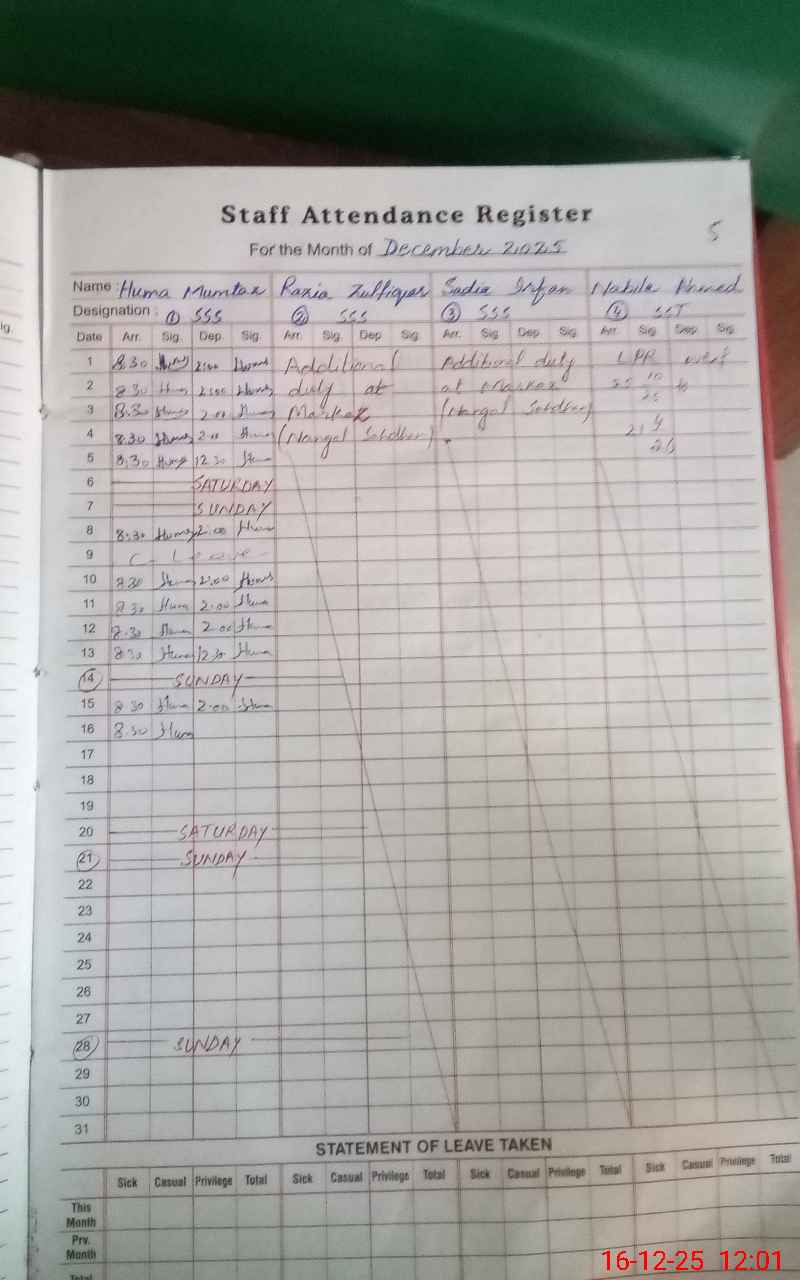 Staff Attendance Register
5
For the Month of December 2025
Name : Huma Mumtaz Razia Zulfiqar Sadia Irfan Nabila Ahmed
Designation : ① SSS ② SSS ③ SSS ④ SST
Date Arr. Sig. Dep. Sig. Arr. Sig. Dep Sig. Arr. Sig. Dep Sig. Arr. Sig Dep Sig
1 8.30 Huma 2:00 Huma Additional Additional duty LPR w.e.f
2 8.30 Huma 2:00 Huma duty at at Markaz 25 10 25 to
3 8.30 Huma 2.00 Huma Markaz (Nangal Sahdhan)
4 8.30 Huma 2.00 Huma (Nangal Sahdhan). 21 4 26
5 8.30 Huma 12 30 Huma
6 SATURDAY
7 SUNDAY
8 8.30 Huma 2:00 Huma
9 C. Leave
10 8 30 Huma 2:00 Huma
11 8 30 Huma 2.00 Huma
12 8.30 Huma 2.00 Huma
13 8 30 Huma 12 30 Huma
14 SUNDAY
15 8 30 Huma 2.00 Huma
16 8.30 Huma
17
18
19
20 SATURDAY
21 SUNDAY
22
23
24
25
26
27
28 SUNDAY
29
30
31
STATEMENT OF LEAVE TAKEN
Sick Casual Privilege Total Sick Casual Privilege Total Sick Casual Privilege Total Sick Casual Privilege Total
This
Month
Prv.
Month
Total
16-12-25 12:01